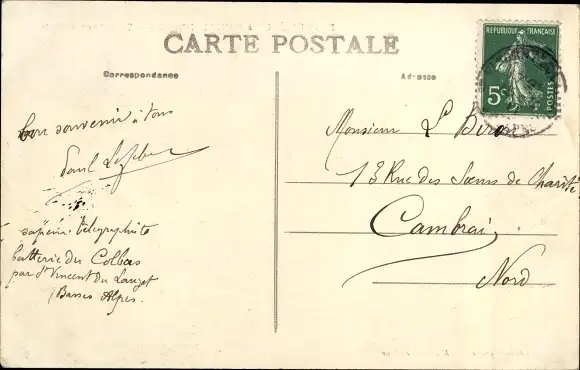 CARTE POSTALE
Correspondance
Adresse
RÉPUBLIQUE FRANÇAISE
5c
POSTES
bon souvenir à tous
Paul
sapeur télégraphiste
batterie du Colbas
par St Vincent du Lauzet
(Basses Alpes.
Monsieur L
13 Rue des Sœurs de Charité
Cambrai
Nord